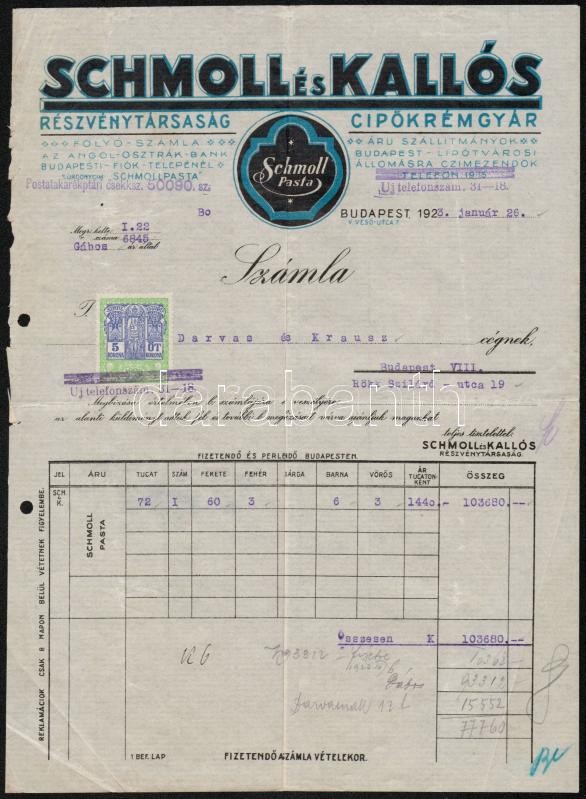 SCHMOLL ÉS KALLÓS
RÉSZVÉNYTÁRSASÁG
CIPŐKRÉMGYÁR
FOLYÓ-SZÁMLA
AZ ANGOL-OSZTRÁK-BANK
BUDAPESTI-FIÓK-TELEPÉNÉL
"SCHMOLLPASTA"
Postatakarékptári csekksz. 50090. sz.
Schmoll
Pasta
ÁRU SZÁLLITMÁNYOK
BUDAPEST-LIPÓTVÁROSI
ÁLLOMÁSRA CZIMEZENDŐK
TELEFON
Uj telefonszám. 31-18.
Bo
BUDAPEST, 1923. január 26.
V. VESŐ-UTCA 7.
Megr. kelte: I.22
száma 6845
Gábos úr által
Számla
T.
5 ÖT
KORONA KORONA
Darvas és Krausz cégnek,
Budapest VIII.
Rökk Szilárd - utca 19
Uj telefonszám. 31-18.
darabanth
teljes tisztelettel:
SCHMOLL ÉS KALLÓS
RÉSZVÉNYTÁRSASÁG.
FIZETENDŐ ÉS PERLENDŐ BUDAPESTEN.
JEL ÁRU TUCAT SZÁM FEKETE FEHÉR SÁRGA BARNA VÖRÖS ÁR TUCATON-KÉNT ÖSSZEG
SCH. K. 72 I 60 3 6 3 1440.- 103680.--
SCHMOLL PASTA
REKLAMÁCIÓK CSAK 8 NAPON BELÜL VÉTETNEK FIGYELEMBE.
Összesen K 103680.--
10368
93312
15552
77760
1 BEF. LAP
FIZETENDŐ A SZÁMLA VÉTELEKOR.